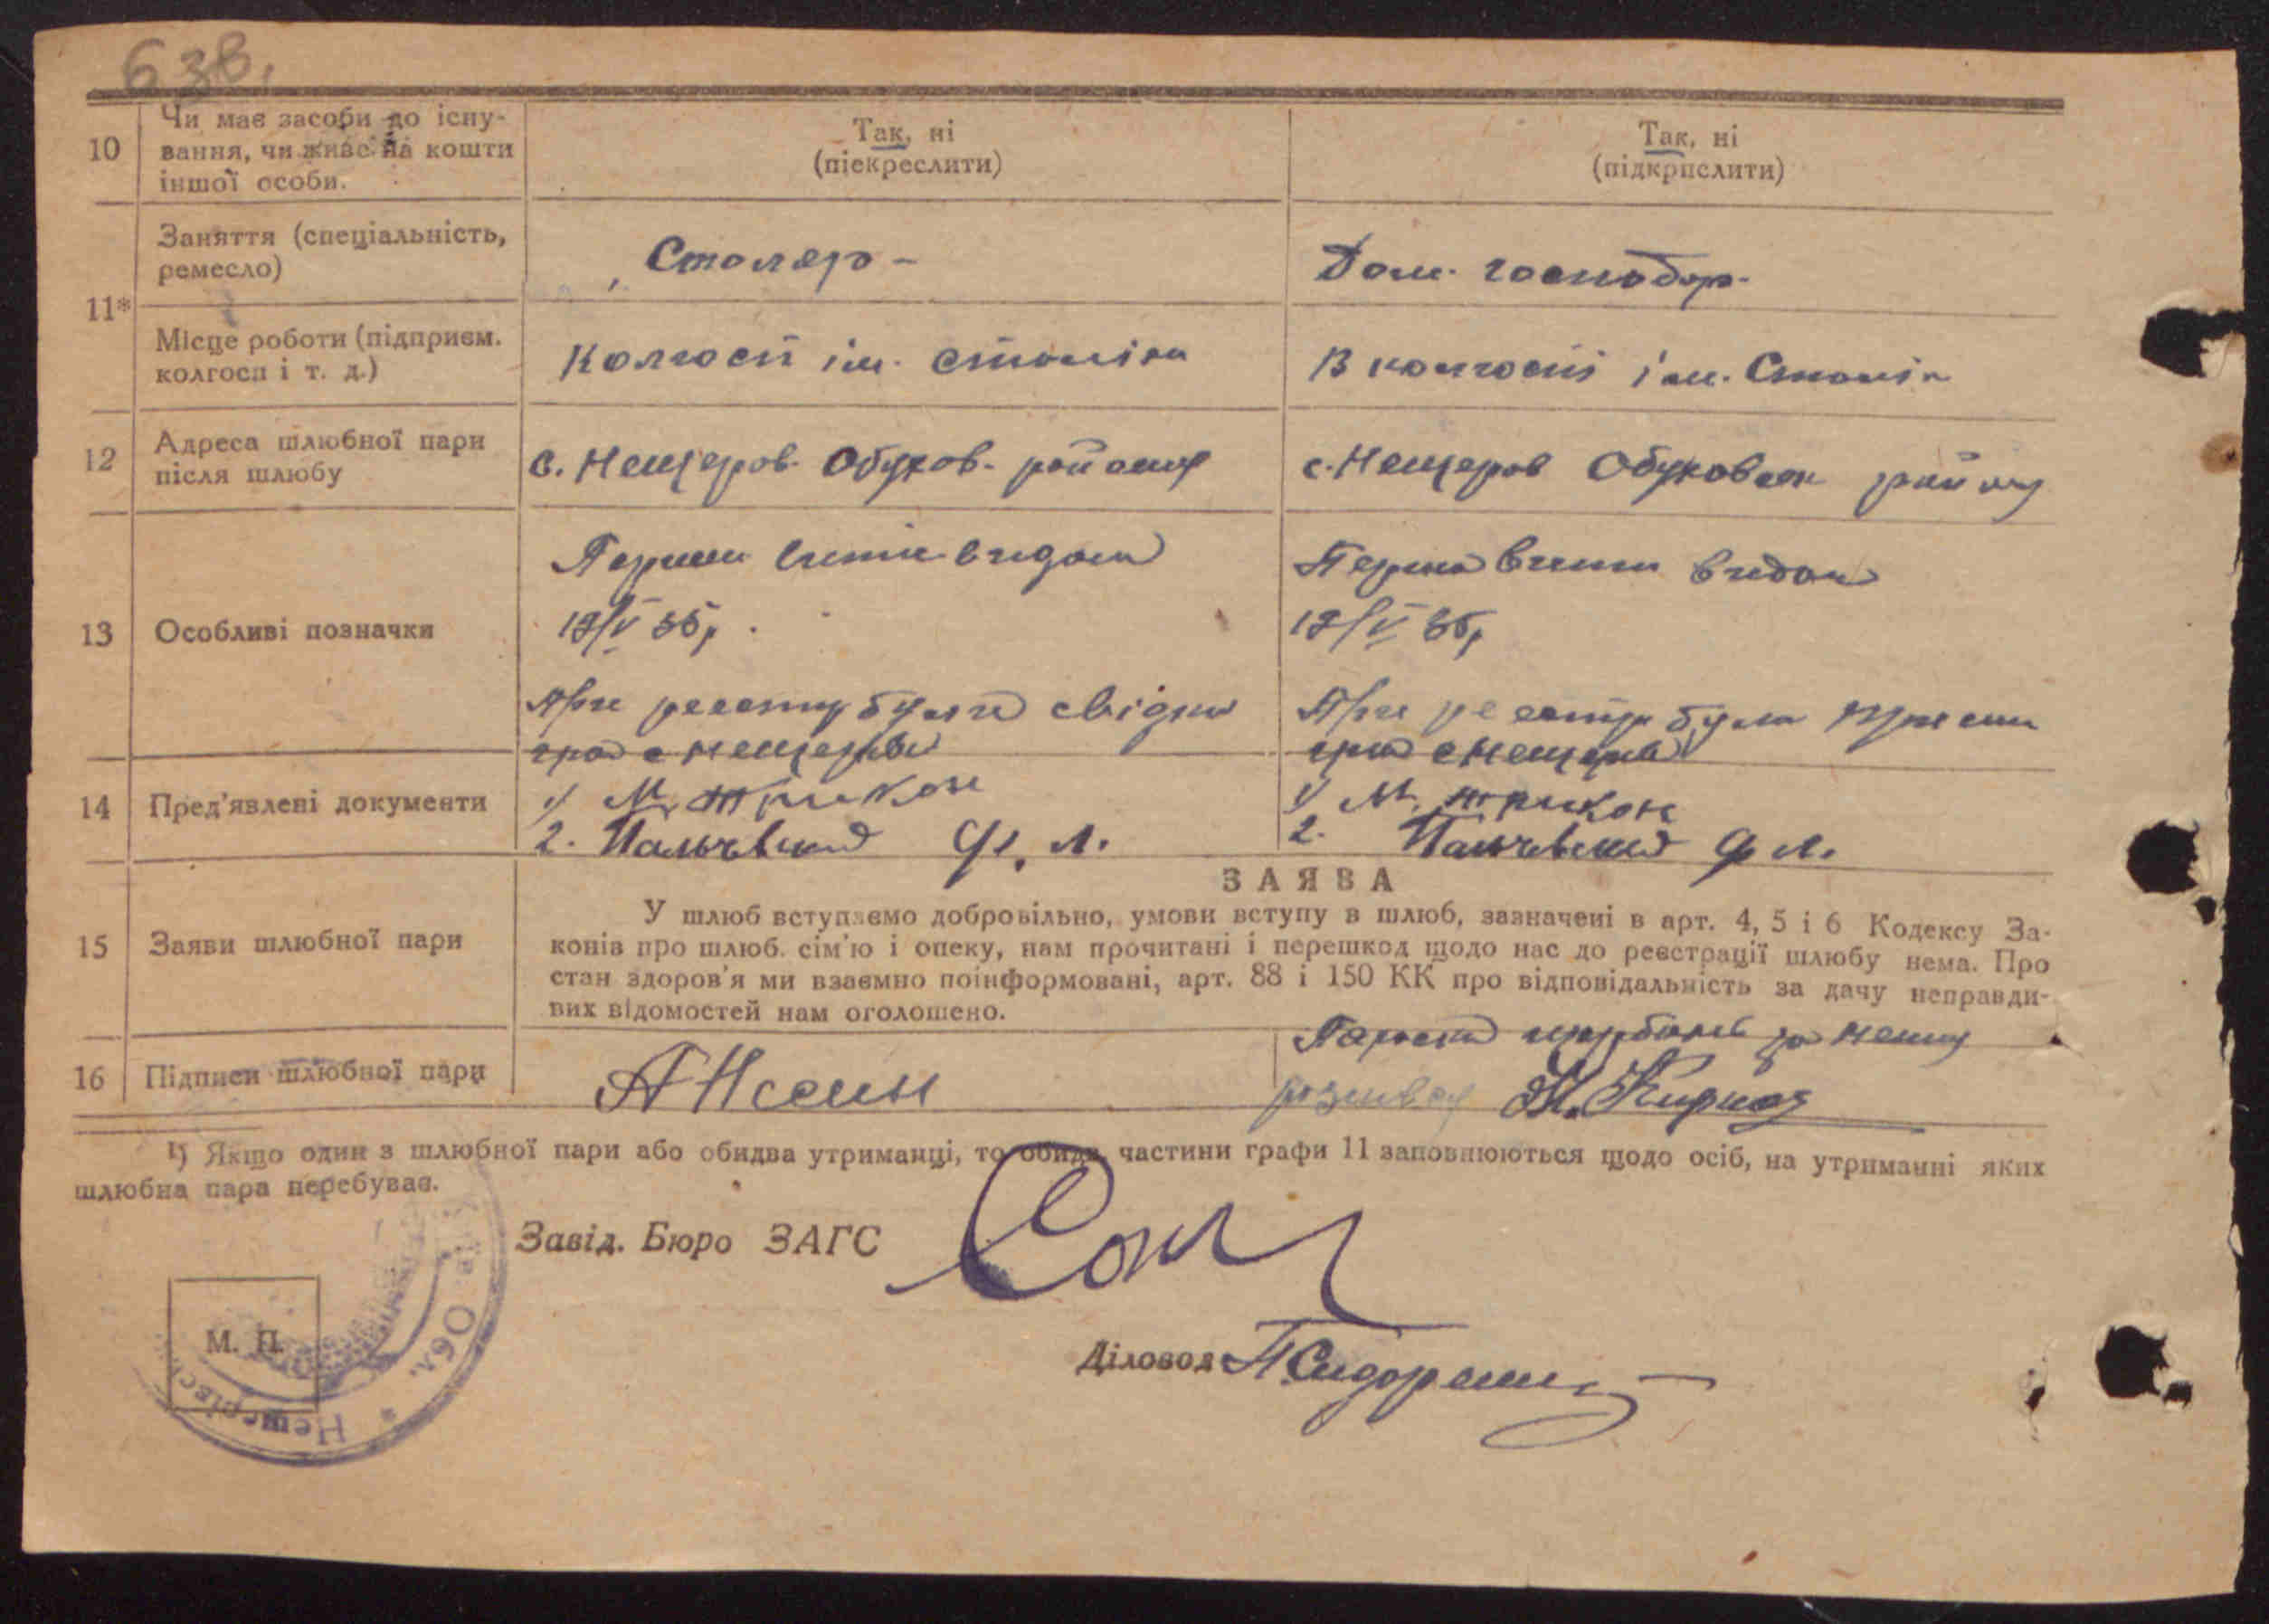 6 зв.
10
Чи має засоби до існу-
вання, чи живе на кошти
іншої особи.
Так, ні
(піекреслити)
Так, ні
(підкрислити)
11*
Заняття (спеціальність,
ремесло)
Столяр -
Дом. господар.
Місце роботи (підприєм.
колгосп і т. д.)
Колгосп ім. Сталіна
В колгоспі ім. Сталін
12
Адреса шлюбної пари
після шлюбу
с. Нещеров. Обухов. району
с. Нещеров Обуховськ району
13
Особливі позначки
19/V 35р.
19/V 35р
При реестр були свідки
гра с Нещерова
При реестр були
гра с Нещерова
14
Пред'явлені документи
1) М. Трикоз
2. Пальчевский Ф. Л.
1) М. Трикоз
2. Пальчевский Ф Л.
15
Заяви шлюбної пари
ЗАЯВА
У шлюб вступаємо добровільно, умови вступу в шлюб, зазначені в арт. 4, 5 і 6 Кодексу За-
конів про шлюб. сім'ю і опеку, нам прочитані і перешкод щодо нас до реєстрації шлюбу нема. Про
стан здоров'я ми взаємно поінформовані, арт. 88 і 150 КК про відповідальність за дачу неправди-
вих відомостей нам оголошено.
16
Підписи шлюбної пари
за неї
М.
1) Якщо один з шлюбної пари або обидва утриманці, то обидві частини графи 11 заповнюються щодо осіб, на утриманні яких
шлюбна пара перебуває.
Завід. Бюро ЗАГС
М. П.
Нещерівсь
Обл.
Діловод